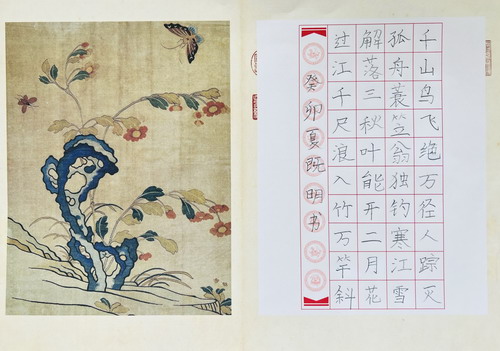 千山鸟飞绝万径人踪灭
孤舟蓑笠翁独钓寒江雪
解落三秋叶能开二月花
过江千尺浪入竹万竿斜
癸卯夏既明书